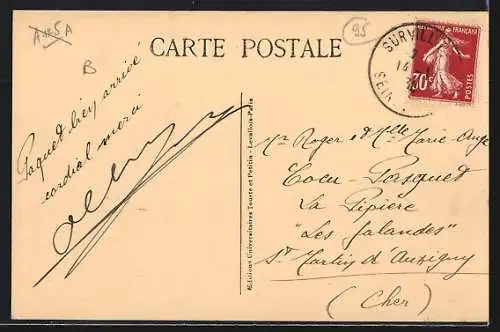 A 125 A
95
B
CARTE POSTALE
SURVILL
14
SEINE
FRANÇAISE
30c
POSTES
Paquet bien arrivé
cordial merci
Ædition Universitaires Tourte et Petitin - Levallois-Paris
Mr Roger & Mlle Marie-Ange
Cocu-Pasquet
La Pipière
"Les Jalandes"
St Martin d'Auxigny
(Cher)